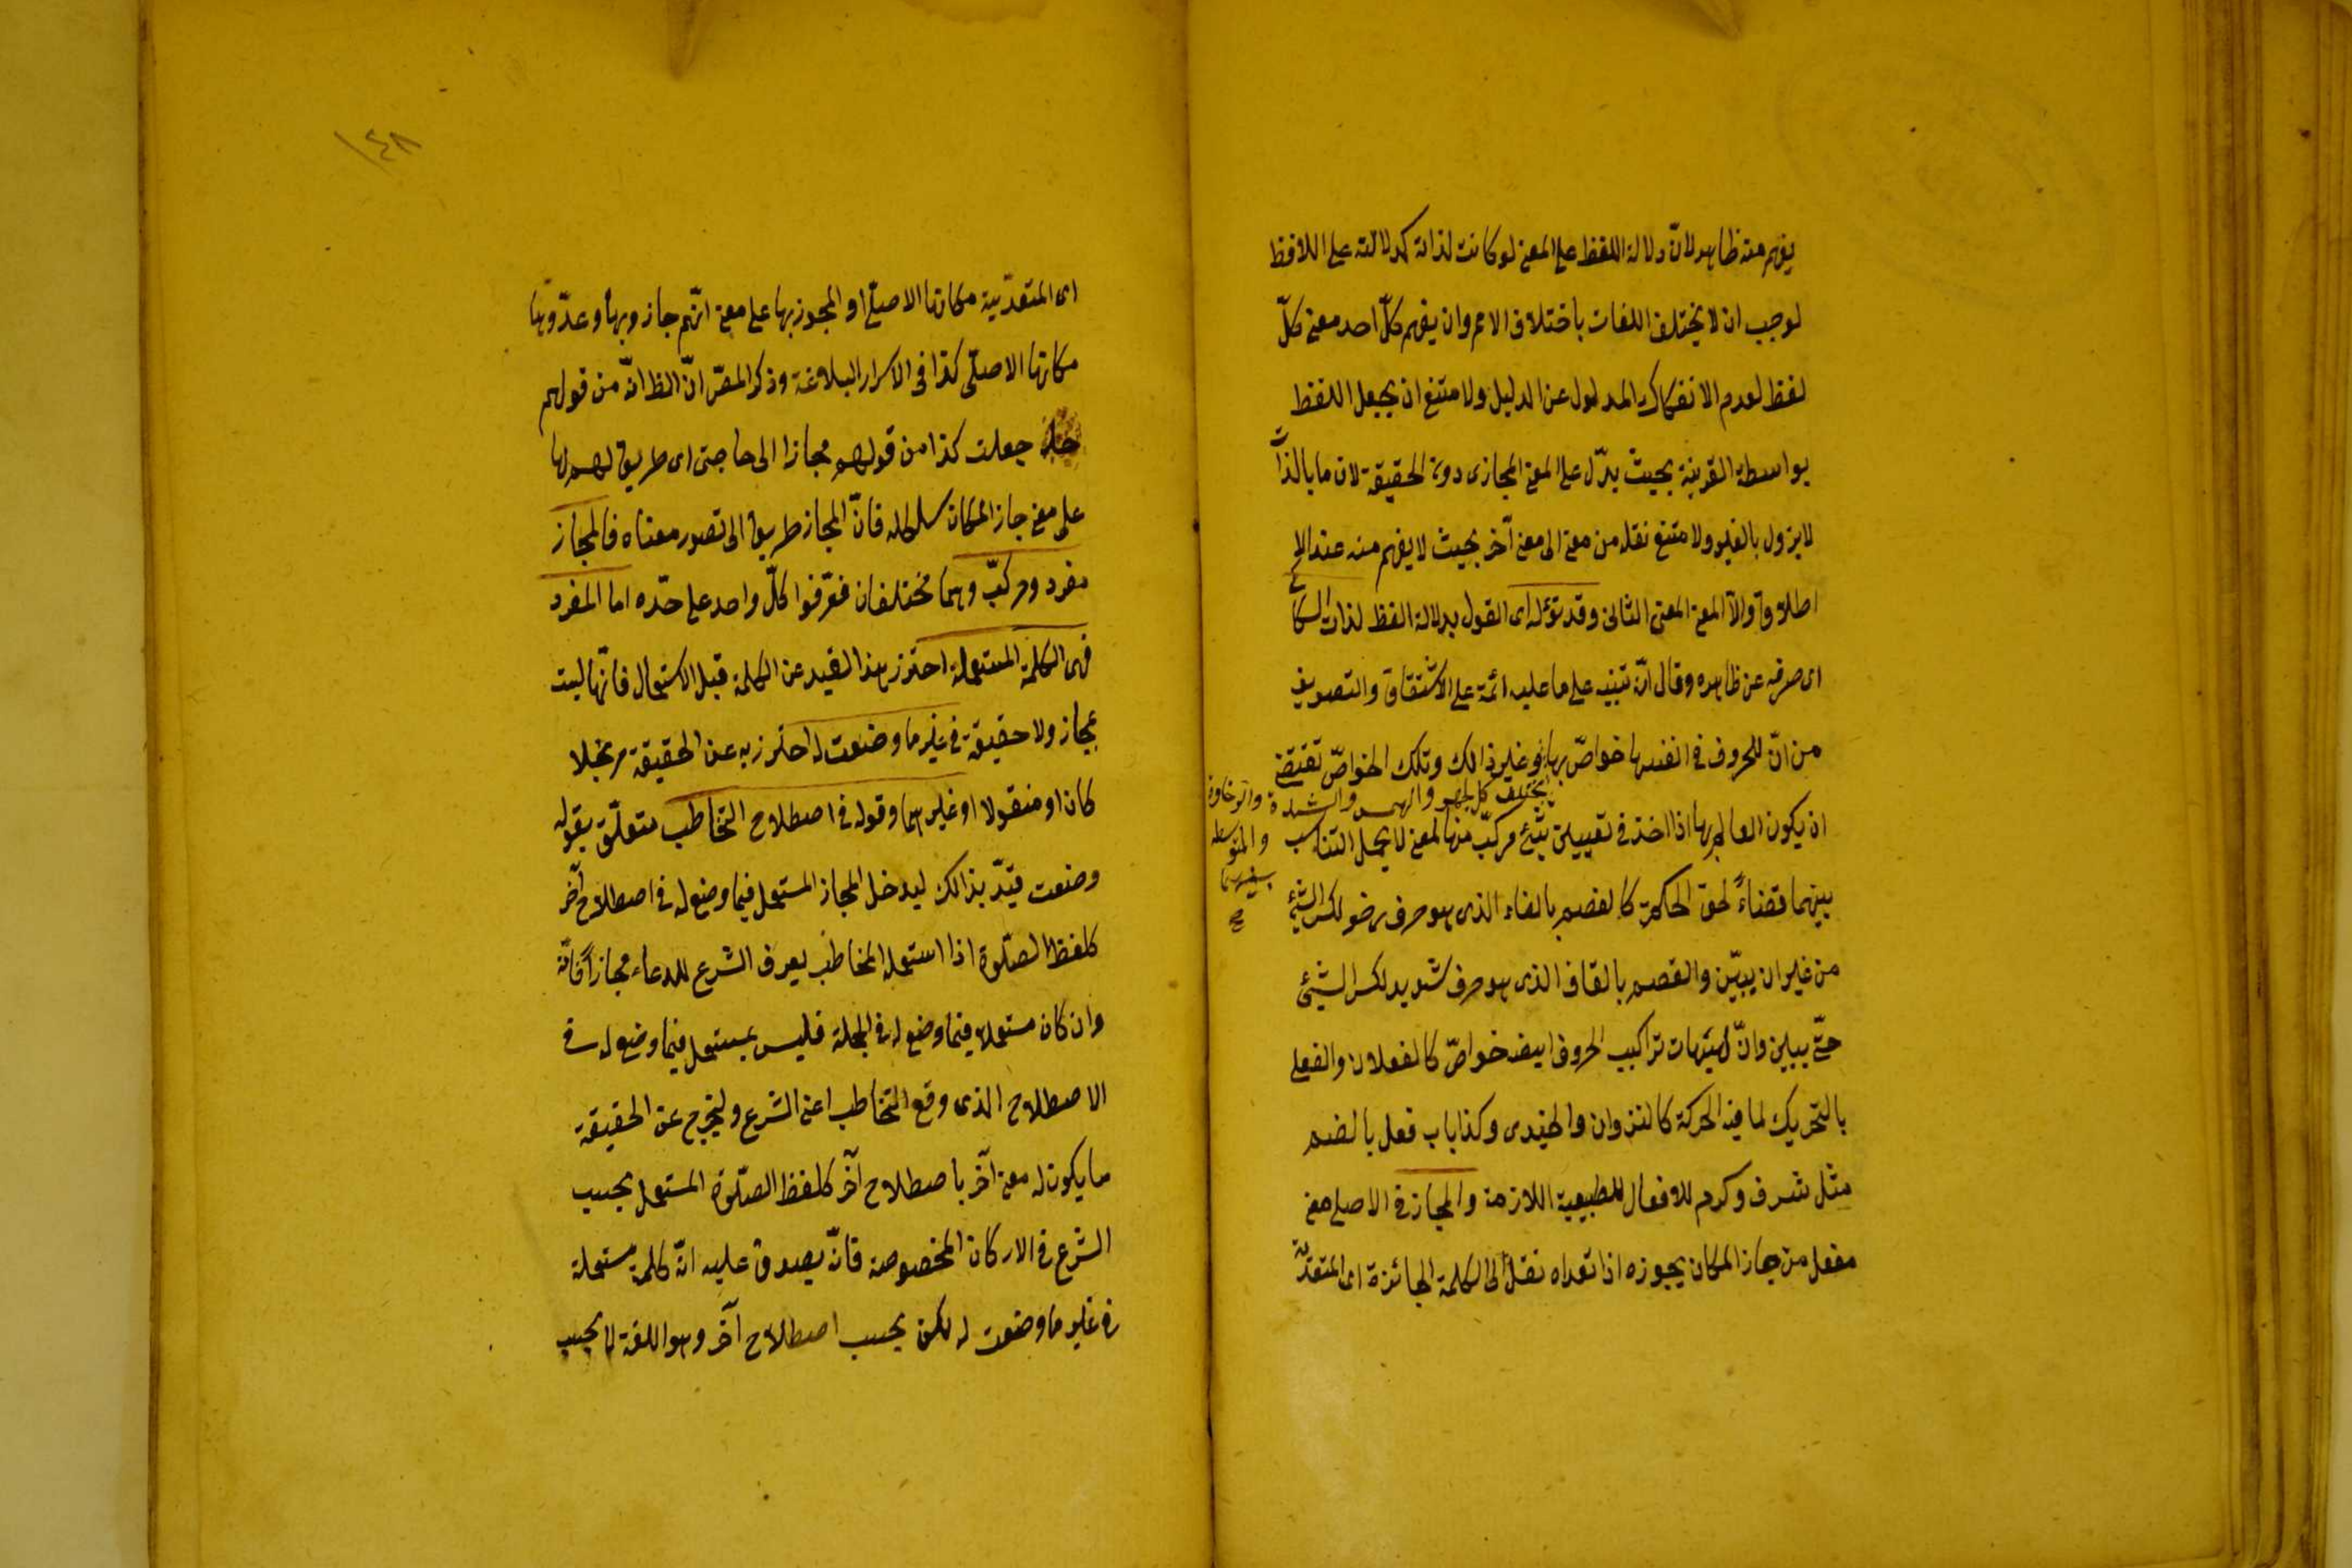 يفهم منه ظاهر لانّ دلالة اللفظ على المعنى لو كانت لذاته كدلالته على اللافظ
لوجب ان لا يختلف اللغات باختلاف الامم وان يفهم كلّ احد معنى كلّ
لفظ لعدم الانفكاك المدلول عن الدليل ولا متنع ان يجعل اللفظ
بواسطة القرينة بحيث يدّل على المعنى المجازى دون الحقيقة لان ما بالذات
لا يزول بالغير ولا متنع نقله من معنى الى معنى آخر بحيث لا يفهم منه عند الا
اطلاق والاّ المعنى المعنى الثانى وقد تؤله اى القول بدلالة الفظ لذات السكاكى
اى صرفه عن ظاهره وقال انّه تنبيه على ما عليه ائمة على الاشتقاق والتصريف
من انّ للحروف فى انفسها خواصّ بها وغير ذالك وتلك الخواصّ تقتضى
يختلف كالجهر والهمس والشدة والرخاوة
والمتوسط
بينهما
صح
ان يكون العالم بها اذا اخذ فى تعيين شئ مركّب منها لمعنى لا يهمل التناسب
بينهما قضاءً لحق الحكمة كالفصم بالفاء الذى هو حرف رخو لكسر الشئ
من غير ان يبيّن والقصم بالقاف الذى هو حرف شديد لكسر الشيئ
حتّى يبين وانّ لهيئهات تراكيب الحروف ايضا خواصّ كالفعلان والفعلى
بالتحريك لما فيه الحركة كالنزوان والحيدى وكذا باب فعل بالضم
مثل شرف وكرم للافعال للطبيعية اللازمة والمجاز فى الاصل مفعل
مفعل من جاز المكان يجوزه اذا تعداه نقل الى الكلمة الجائزة اى المتعدّية
١٤٨
اى المتعدّية مكانها الاصلىّ او المجوز بها على معنى انّهم جازوا بها وعدّوها
مكانها الاصلّى كذا فى الاسرار البلاغة وذكر المصّ انّ الظ انّه من قولهم
جعلت كذا من قولهم مجازا الى حاجتى اى طريق لهم لها
على معنى جاز المكان سلكه فانّ المجاز طريق الى تصور معناه فالمجاز
مفرد ومركبّ وهما مختلفان فعّرفوا كلّ واحد على حدّه اما المفرد
فهى الكلمة المستعملة احترز بهذا القيد عن الكلمة قبل الاستعمال فانّها ليست
بمجاز ولا حقيقة فى غير ما وضعت له احترز به عن الحقيقة مرتجلا
كان او منقولا او غيرهما وقوله فى اصطلاح التخاطب متعلّق بقوله
وضعت قيّد بذالك ليدخل المجاز المستعمل فيما وضع له فى اصطلاح آخر
كلفظ الصلّوة اذا استعمله المخاطب بعرف الشرع للدعاء مجازاً فانّه
وان كان مستعملا فيما وضع له فى الجملة فليس بمستعمل فيما وضع له فى
الاصطلاح الذى وقع التخاطب اعنى الشرع وليخرج عن الحقيقة
ما يكون له معنى آخر باصطلاح آخر كلفظ الصلّوة المستعمل بحسب
الشرع فى الاركان المخصوصة فانّه يصدق عليه انّه كلمة مستعملة
فى غير ما وضعت له لكن بحسب اصطلاح آخر وهو اللغة لا بحسب